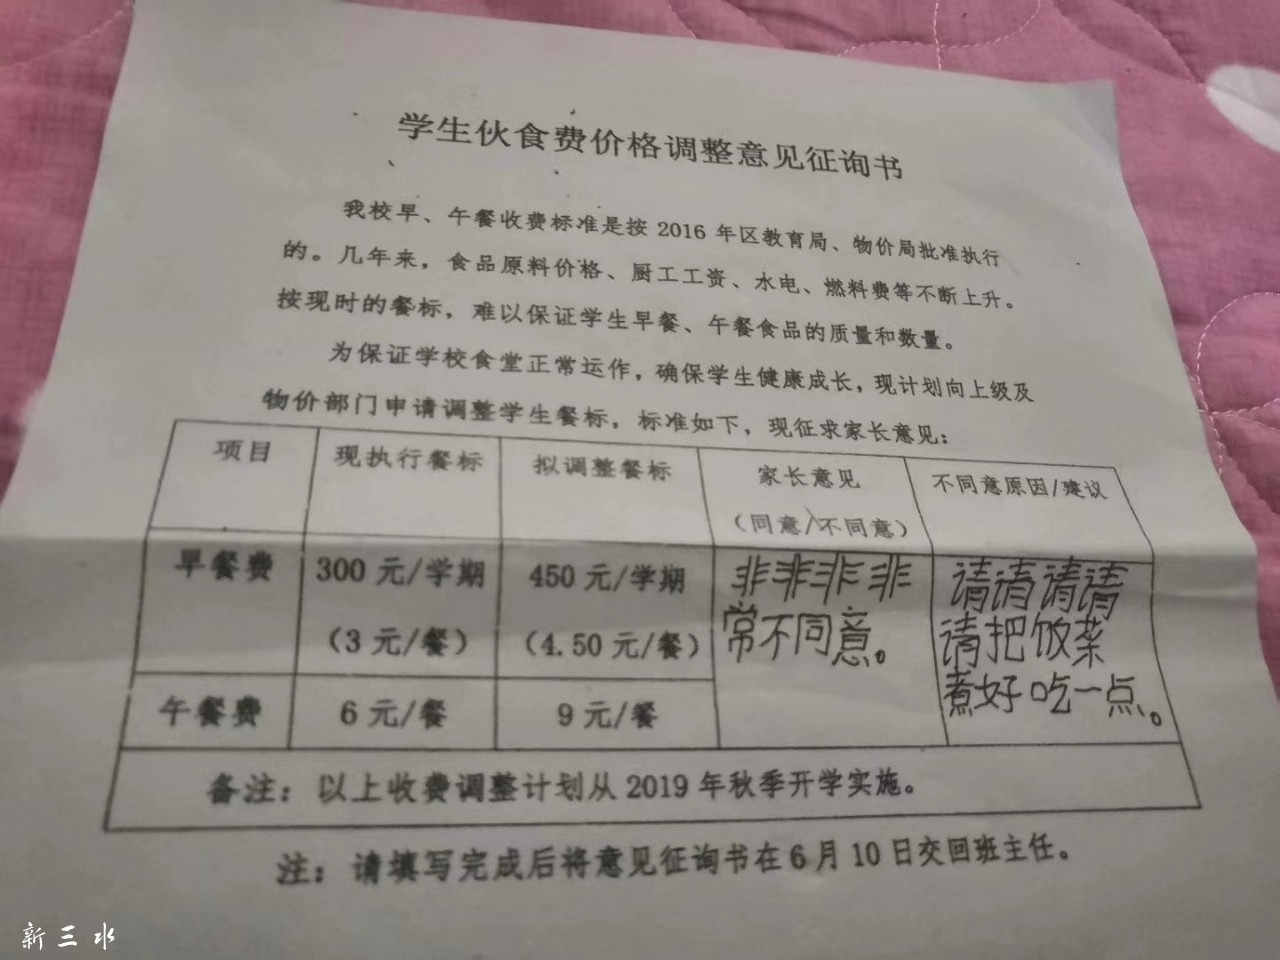 学生伙食费价格调整意见征询书
我校早、午餐收费标准是按 2016 年区教育局、物价局批准执行
的。几年来，食品原料价格、厨工工资、水电、燃料费等不断上升。
按现时的餐标，难以保证学生早餐、午餐食品的质量和数量。
为保证学校食堂正常运作，确保学生健康成长，现计划向上级及
物价部门申请调整学生餐标，标准如下，现征求家长意见：
项目
现执行餐标
拟调整餐标
家长意见
（同意/不同意）
不同意原因/建议
早餐费
300 元/学期
（3 元/餐）
450 元/学期
（4.50 元/餐）
非非非非
常不同意。
请请请请
请把饭菜
煮好吃一点。
午餐费
6 元/餐
9 元/餐
备注：以上收费调整计划从 2019 年秋季开学实施。
注：请填写完成后将意见征询书在 6 月 10 日交回班主任。
新三水